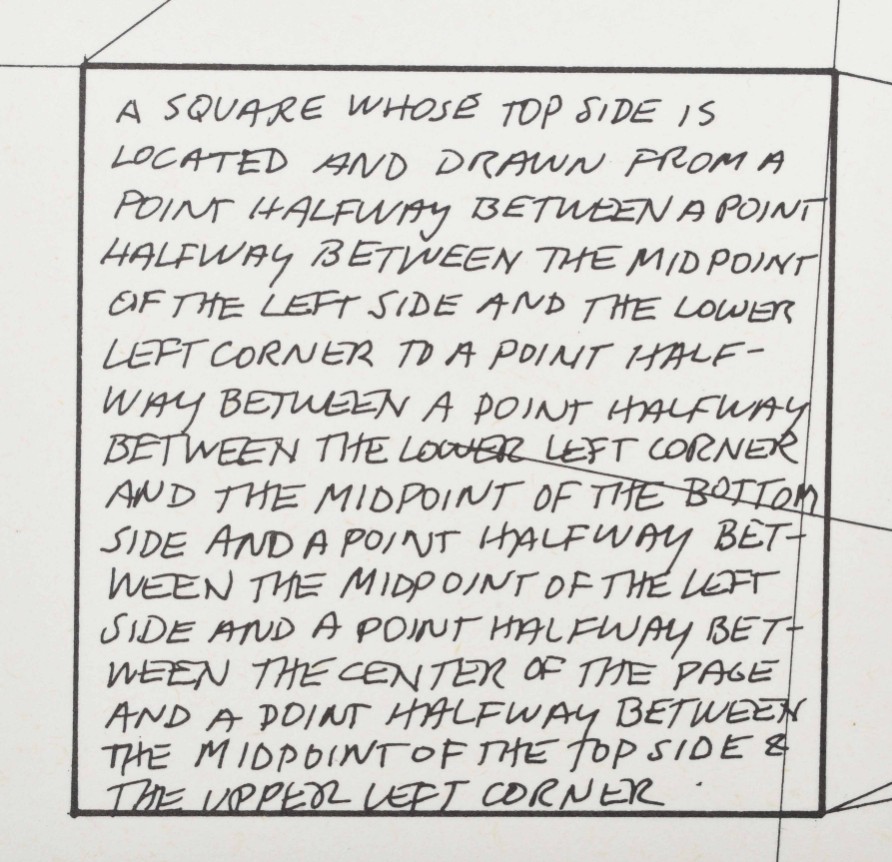 A SQUARE WHOSE TOP SIDE IS
LOCATED AND DRAWN FROM A
POINT HALFWAY BETWEEN A POINT
HALFWAY BETWEEN THE MIDPOINT
OF THE LEFT SIDE AND THE LOWER
LEFT CORNER TO A POINT HALF-
WAY BETWEEN A POINT HALFWAY
BETWEEN THE LOWER LEFT CORNER
AND THE MIDPOINT OF THE BOTTOM
SIDE AND A POINT HALFWAY BET-
WEEN THE MIDPOINT OF THE LEFT
SIDE AND A POINT HALFWAY BET-
WEEN THE CENTER OF THE PAGE
AND A POINT HALFWAY BETWEEN
THE MIDPOINT OF THE TOP SIDE &
THE UPPER LEFT CORNER